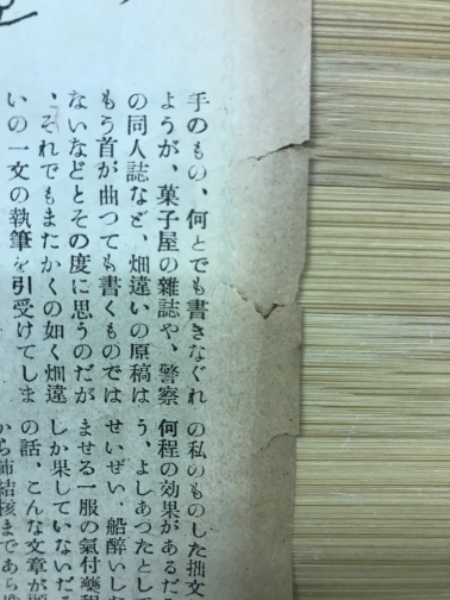 手のもの、何とでも書きなぐれ
ようが、菓子屋の雜誌や、警察
の同人誌など、畑違いの原稿は
もう首が曲つても書くものでは
ないなどとその度に思うのだが
、それでもまたかくの如く畑違
いの一文の執筆を引受けてしま
の私のものした拙文
何程の効果があるだろ
う、よしあつたとして
せいぜい、船醉いした
ませる一服の氣付藥程
しか果していないだろ
の話、こんな文章が
から肺結核まであら